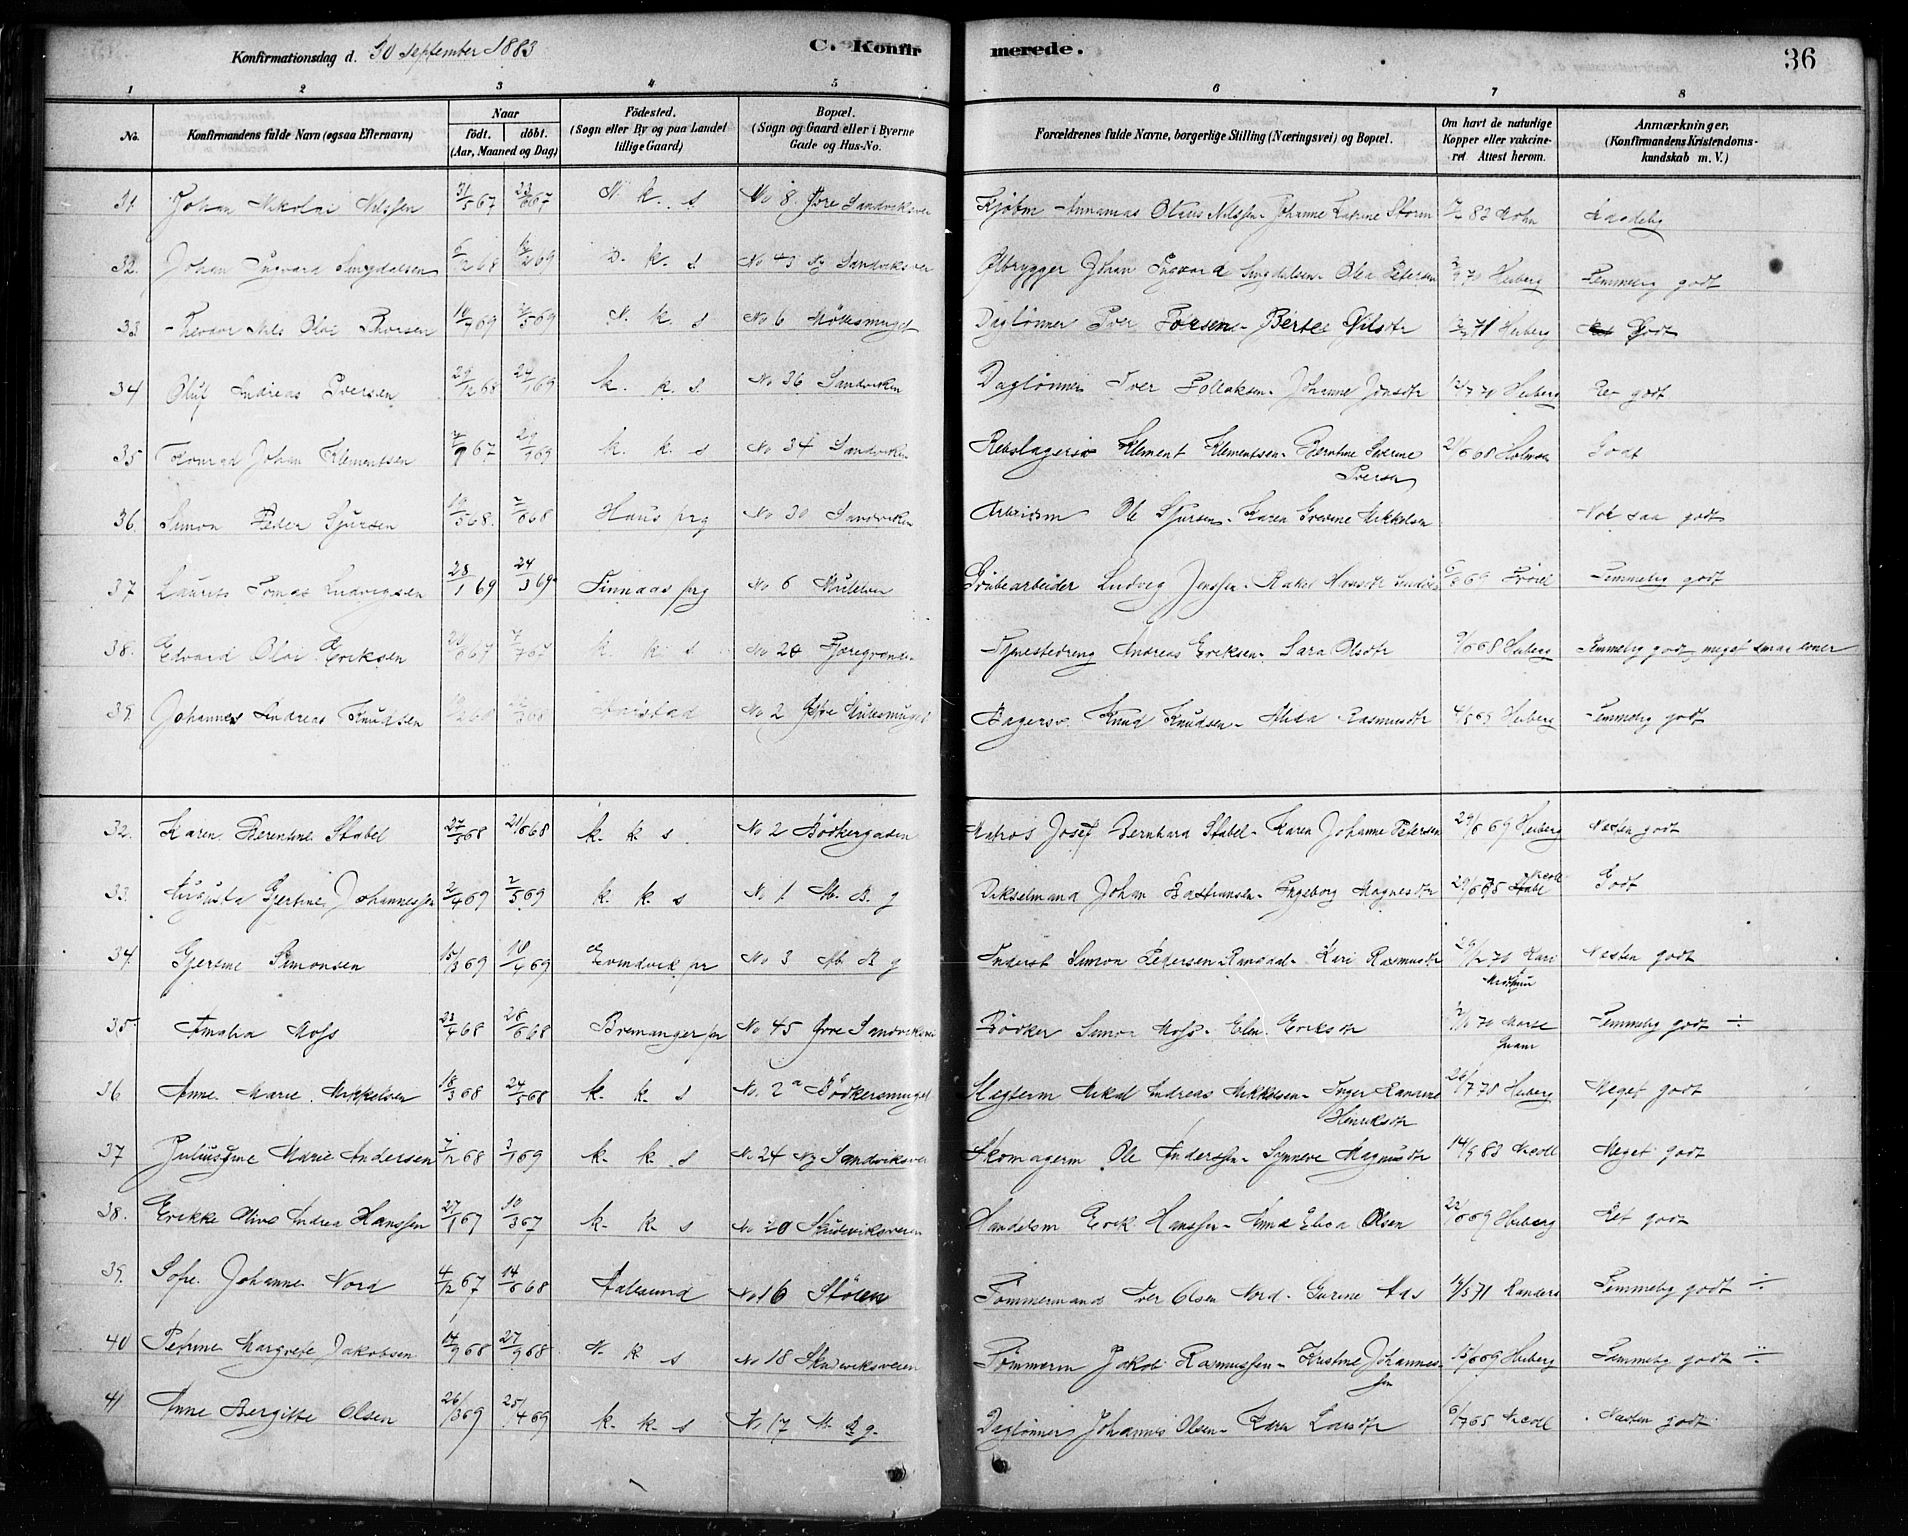 Konfirmationsdag d. 30 September 1883
C. Konfirmerede.
36
1 2 3 4 5 6 7 8
No.
Konfirmandens fulde Navn (ogsaa Efternavn)
Naar
født. døbt.
(Aar, Maaned og Dag)
Fødested.
(Sogn eller By og paa Landet
tillige Gaard)
Bopæl.
(Sogn og Gaard eller i Byerne
Gade og Hus-No.
Forældrenes fulde Navne, borgerlige Stilling (Næringsvei) og Bopæl.
Om havt de naturlige
Kopper eller vakcine-
ret Attest herom.
Anmærkninger.
(Konfirmandens Kristendoms-
kundskab m. V.)
31. Johan Nikolai Nilssen 31/5 67 23/6 67 N. k. s No 8 Øvre Sandviksvei Kjøbm Ananias Olaus Nilssen - Johanne Katrine Storm 83 Mohn Maadelig
32. Johan Ingvard Smgdalsen 68 69 D. k. s No 43 Ny Sandviksvei Ølbrygger Johan Ingvard - Olea Petersen 70 Heiberg Temmelig godt
33. Nils Olai Thorsen 69 69 N. k. s No 6 Møllesmuget Daglønner Iver Torsen - Berte Nilsdtr 71 Heiberg Godt
34 Oluf Andreas Iversen 29/12 68 24/1 69 k. k. s. No 36 Sandviken Daglønner Iver Folleksen - Johanne Jonsdtr 12/7 70 Heiberg Ret godt
35 Konrad Johan Klementsen 67 69 k. k. s No 34 Sandviken Rebslagersv Klement Klementsen - Berntine Severine
Iversen 21/6 68 Holmsen Godt
36. Simon Peder Sjursen 19/5 68. 68 Haus prg No 30 Sandviken Arbeidsm Ole Sjursen - Karen Severine Mikkelsen Nok saa godt
37 Laurits Tomas Ludvigsen 28/1 69 24/3 69 Finnaas prg No 6 Mulelven Grubearbeider Ludvig Jenssen - Rakel Hansdtr 69 Temmelig godt
38. Edvard Olai Eriksen 67 7/7 67 k. k. s No 20 Fjæregrænden Tjenestedreng Andreas Eriksen - Sara Olsdtr 9/6 68 Heiberg Temmelig godt, meget smaa evner
39. Johannes Andreas Knudsen 68 68 No 2 Øvre Mulesmuget Bagersv. Knud Knudsen - Alida Rasmusdtr 4/5 69 Heiberg Temmelig godt
32. Karen Berentine Stabel 27/3 68 21/6 68 k. k. s No 2 Bødkergaden Matros Josef Bernhard Stabel - Karen Johanne Petersen 29/6 69 Heiberg Næsten godt
33. Augusta Gjertine Johannessen 2/4 69 2/5 69 k. k. s No 1 M. B. g Dikselmand Johan Bastiansen - Ingeborg Magnesdtr 29/6 75 Nicoll Godt
34. Gjertine Simonsen 15/3 69 18/4 69 Evindvik pr No 3 M B g Inderst Simon Pedersen - Kari Rasmusdtr 29/12 70 Kari
Næsten godt
35. Amalia Moss 23/4 68 28/6 68 Bremanger pr No 45 Øvre Sandviksvei Bødker Simon Moss - Elen Eriksdtr 70 Marte
Temmelig godt ÷
36 Anne Marie Mikkelsen 18/3 68 24/5 68 k. k. s No 2a Bødkersmuget Slagterm Mikal Andreas Mikkelsen - Inger Randine
Henriksdtr 26/7 70 Heiberg Meget godt
37 Juliusine Marie Andersen 7/12 68 3/1 69 k. k. s No 24 Ny Sandviksvei Skomagerm Ole Anderssen - Synneve Magnusdtr 14/9 83 Nicoll Meget godt
38. Erikke Olive Andrea Hanssen 27/1 67 10/3 67 k. k. s No 20 Skudeviksveien Handelsm Erik Hanssen - Anna Elisa Olsen 22/6 69 Heiberg Ret godt
39. Sofie Johanne Nord 4/12 67 14/6 68 Aalesund No 16 Stølen Tømmermand Iver Olsen Nord - Gurine Aas 71 Randers Temmelig godt ÷
40 Petrine Margrete Jakobsen 14/9 68 27/9 68 N. k s No 18 Skudeviksveien Tømmerm Jakob Rasmussen - Kristine Johannes-
sen 15/6 69 Heiberg Temmelig godt ÷
41 Anne Bergitte Olsen 26/3 69 25/4 69 k. k. s No 17 M. B g. Dagløner Johannes Olsen - Karen Larsdtr 6/7 65 Nicoll Næsten godt